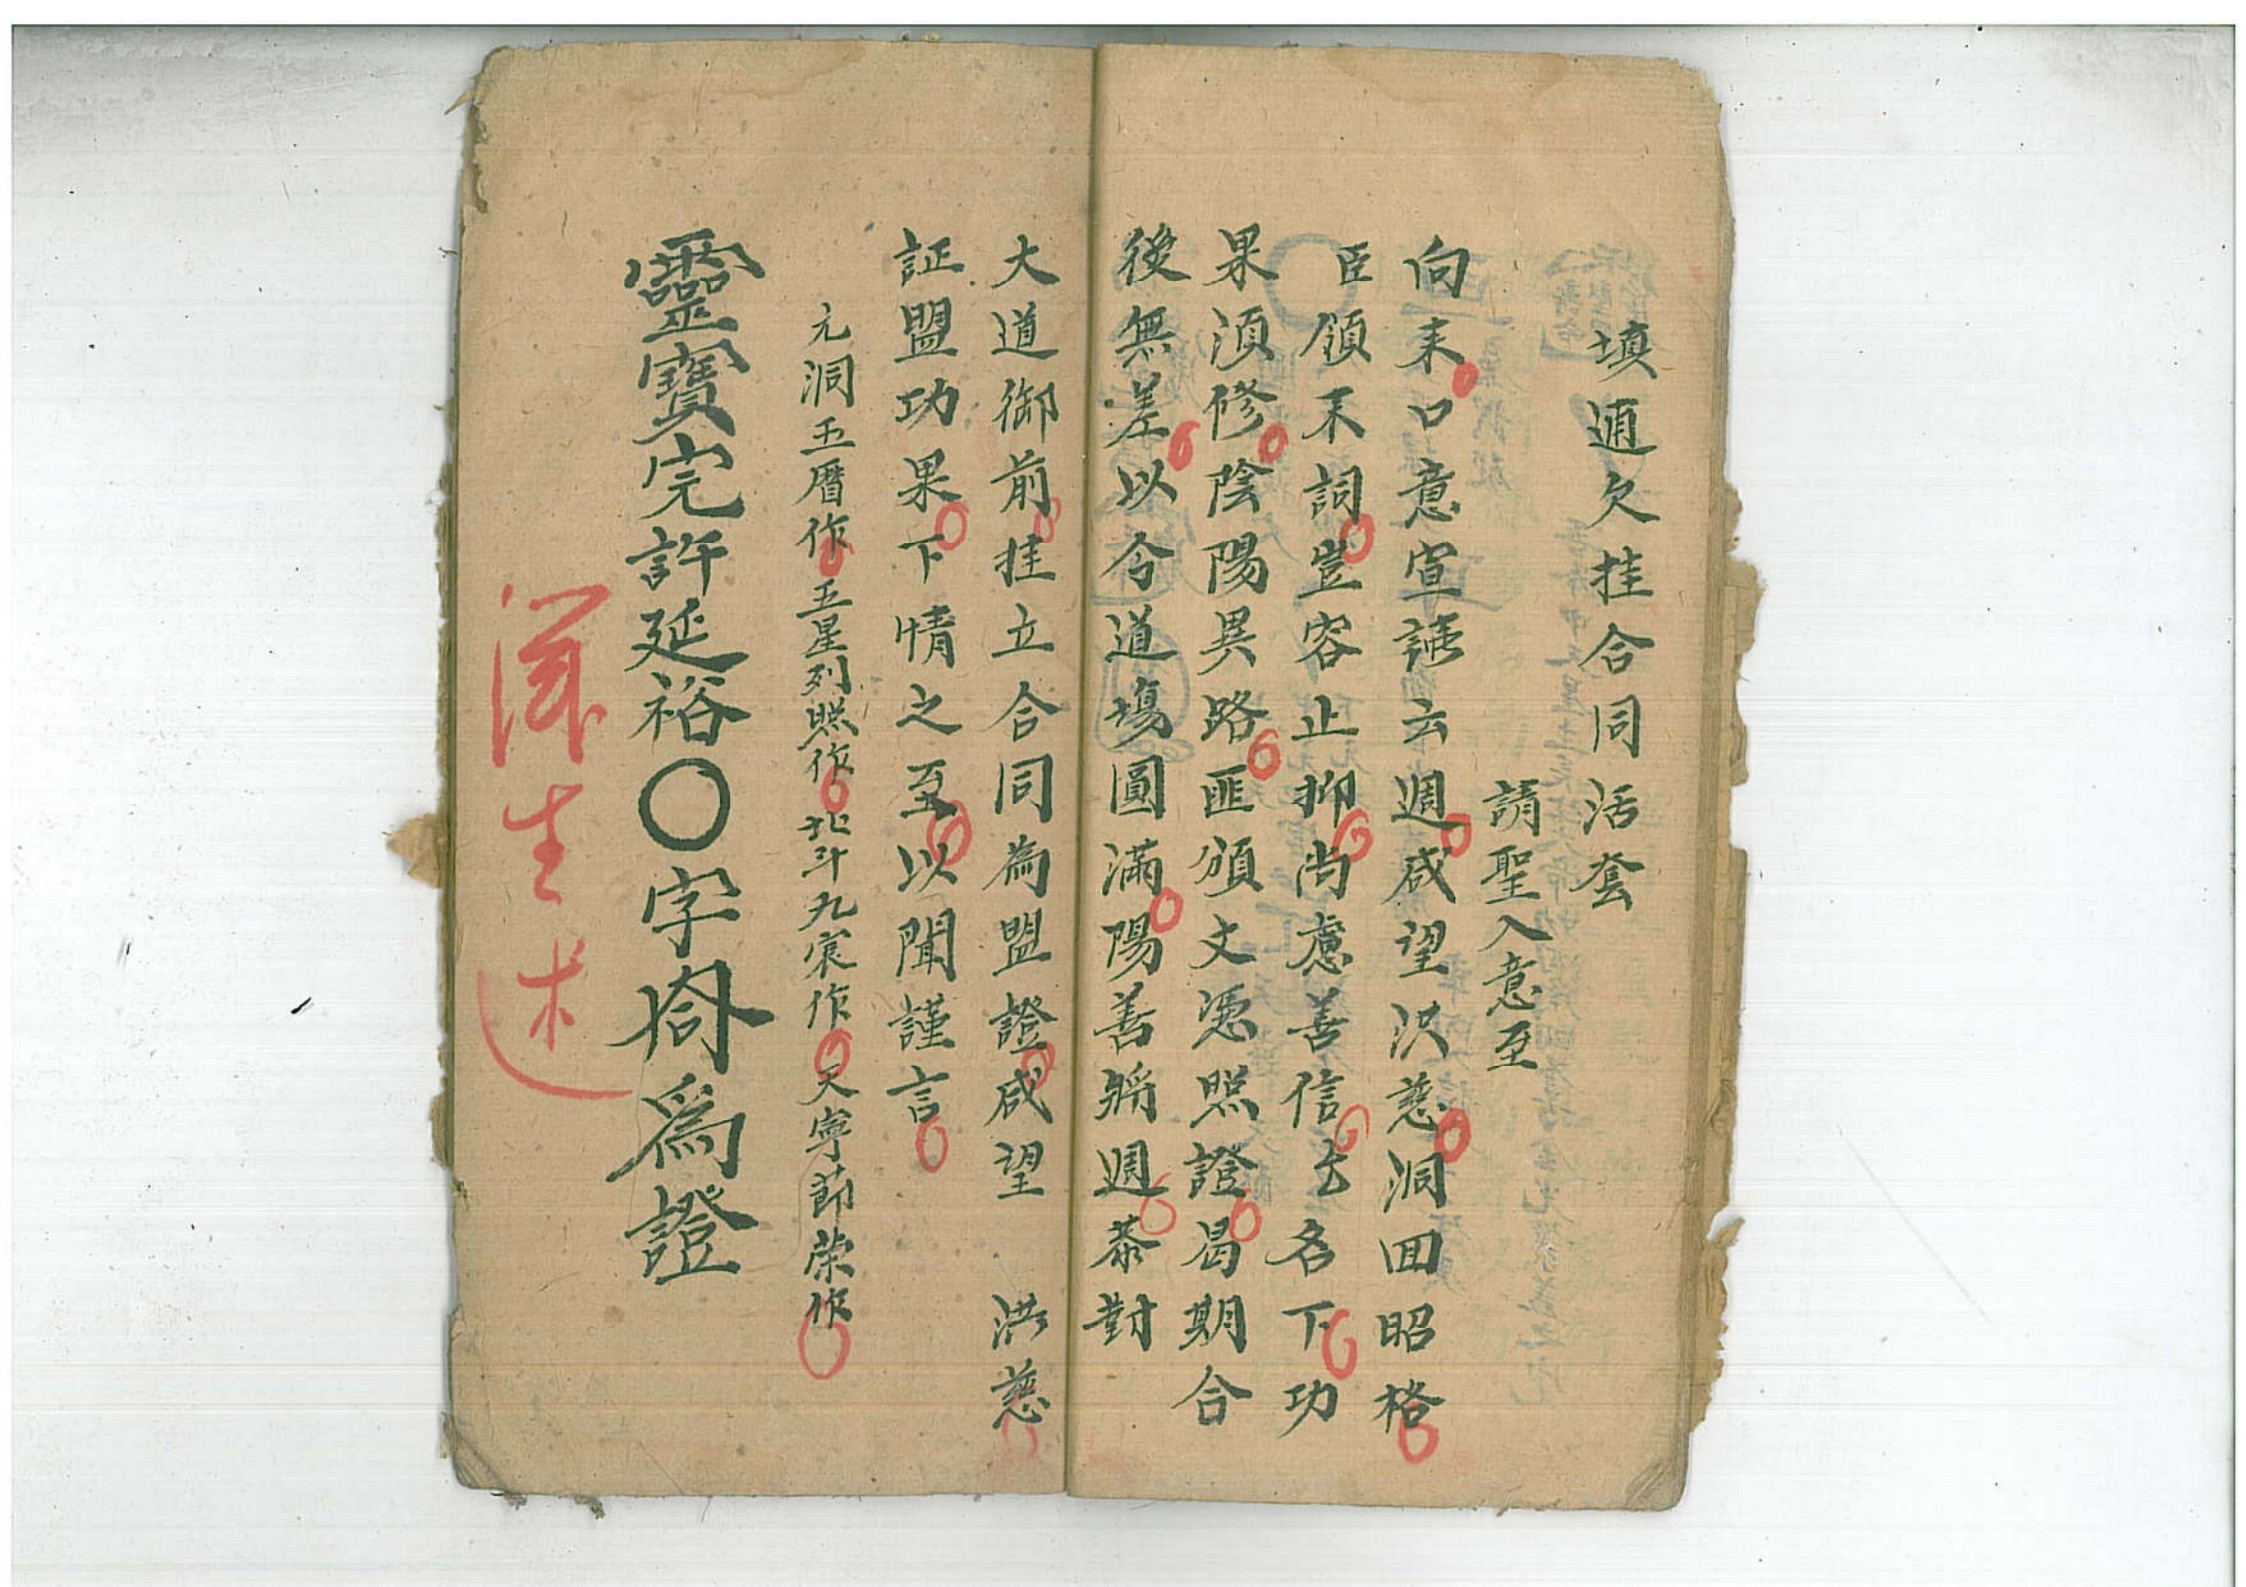 填通欠挂合同活套
請聖入意至
向来口意宣諷云週咸望沢慈洞囬昭格
臣領禾詞豈容止抑尚慮善信厶名下功
果湏修陰陽異路匪頒文慿照證曷期合
後無差以今道塲圓滿陽善將週恭對
大道御前挂立合同為盟證咸望 洪慈
証盟功果下情之至以聞謹言
元洞玉曆作五星列照作北斗九宸作天寧節荣作
靈寳完許延裕〇字 為證
生述